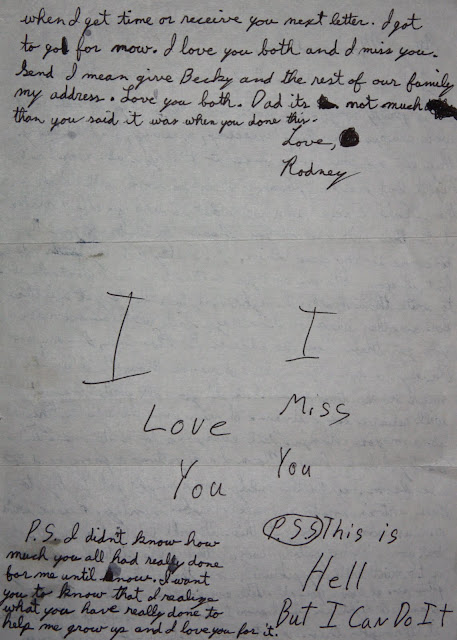 when I get time or receive you next letter. I got
to go for now. I love you both and I miss you.
Send I mean give Becky and the rest of our family
my address. Love you both. Dad its not much
than you said it was when you done this.
Love,
Rodney
I
Love
You
I
Miss
You
P.S. I didn't know how
much you all had really done
for me until know. I want
you to know that I realize
what you have really done to
help me grow up and I love you for it.
P.S.S This is
Hell
But I Can Do It